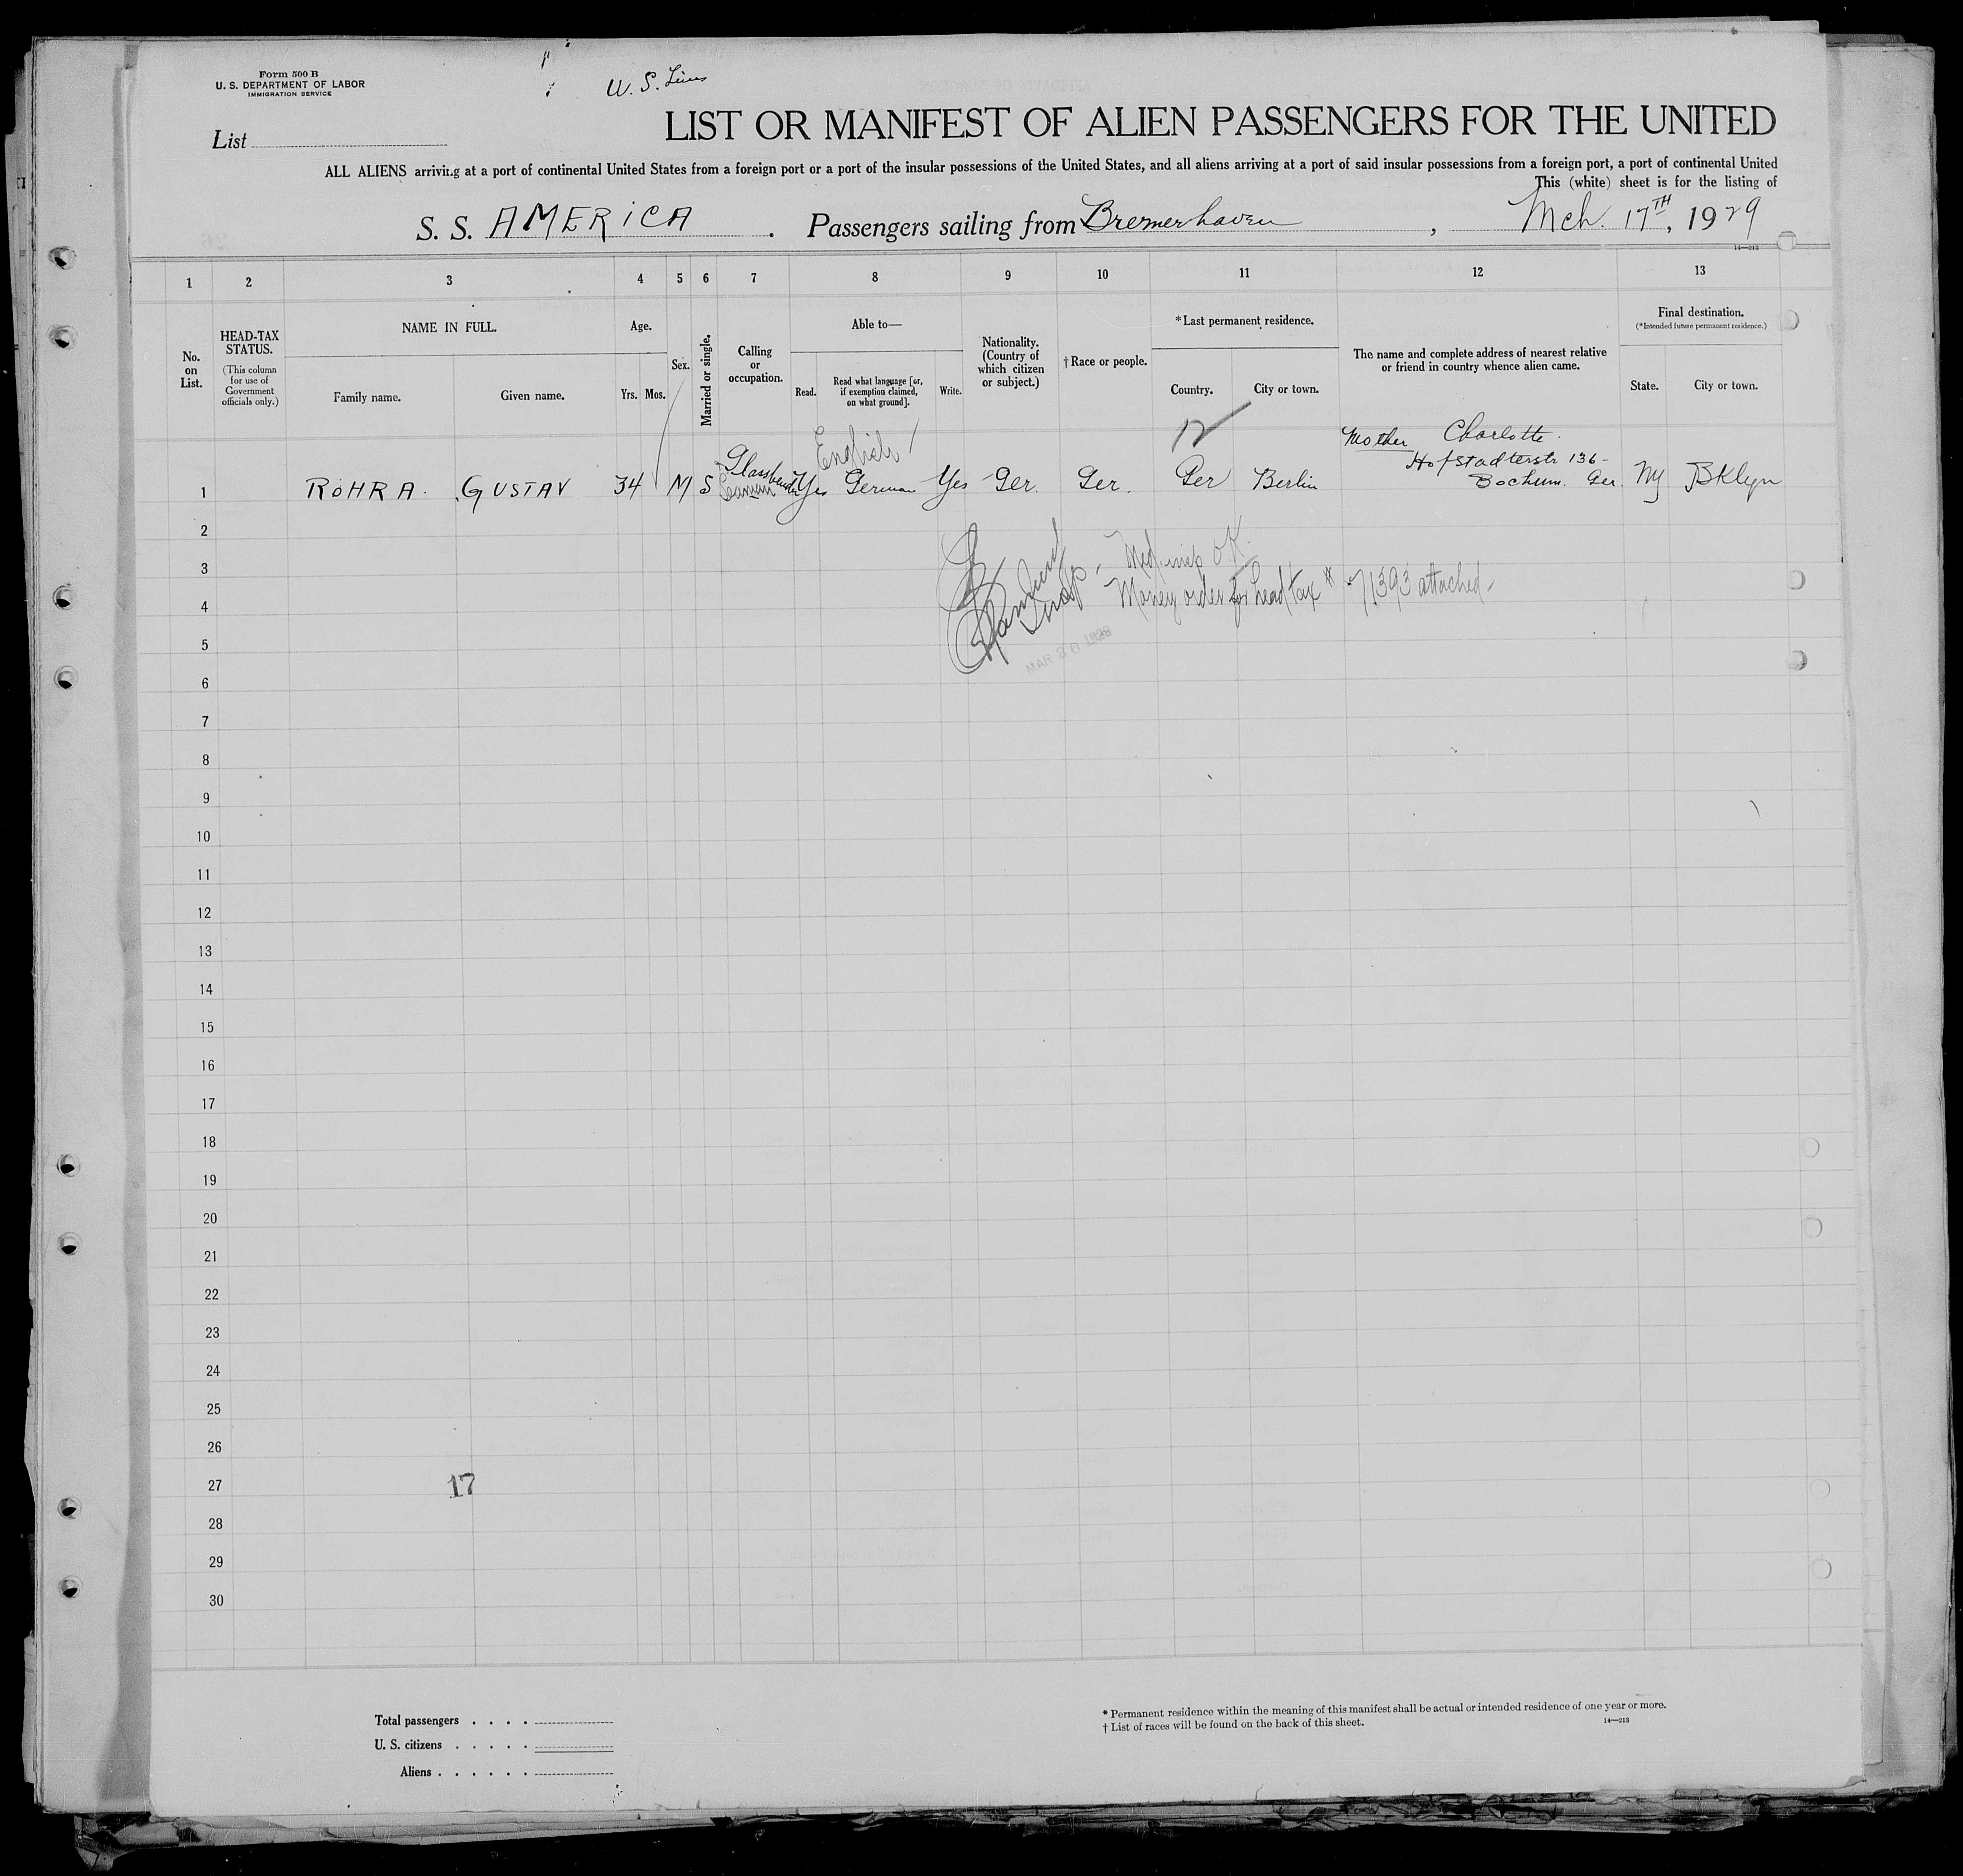 Form 500 B
U. S. DEPARTMENT OF LABOR
IMMIGRATION SERVICE
U. S. Lines
List
LIST OR MANIFEST OF ALIEN PASSENGERS FOR THE UNITED
ALL ALIENS arriving at a port of continental United States from a foreign port or a port of the insular possessions of the United States, and all aliens arriving at a port of said insular possessions from a foreign port, a port of continental United
This (white) sheet is for the listing of
S. S. AMERICA . Passengers sailing from Bremerhaven , Mch. 17TH, 1929
14—213
1 2 3 4 5 6 7 8 9 10 11 12 13
No. on List.
HEAD-TAX STATUS.
(This column for use of Government officials only.)
NAME IN FULL.
Family name. Given name.
Age.
Yrs. Mos.
Sex.
Married or single.
Calling or occupation.
Able to—
Read. Read what language [or, if exemption claimed, on what ground]. Write.
Nationality. (Country of which citizen or subject.)
†Race or people.
*Last permanent residence.
Country. City or town.
The name and complete address of nearest relative or friend in country whence alien came.
Final destination.
(*Intended future permanent residence.)
State. City or town.
12
English
Mother Charlotte.
Hofstadterstr 136-
Bochum. Ger.
1 ROHRA. GUSTAV 34 M S Yes German Yes Ger. Ger. Ger Berlin NY BKlyn
2
3
O.K.
4
Insp. Money order for head tax # 71393 attached-
5
MAR 30 1929
6
7
8
9
10
11
12
13
14
15
16
17
18
19
20
21
22
23
24
25
26
27
17
28
29
30
Total passengers . . . .
U. S. citizens . . . . .
Aliens . . . . . .
* Permanent residence within the meaning of this manifest shall be actual or intended residence of one year or more.
† List of races will be found on the back of this sheet.
14—213